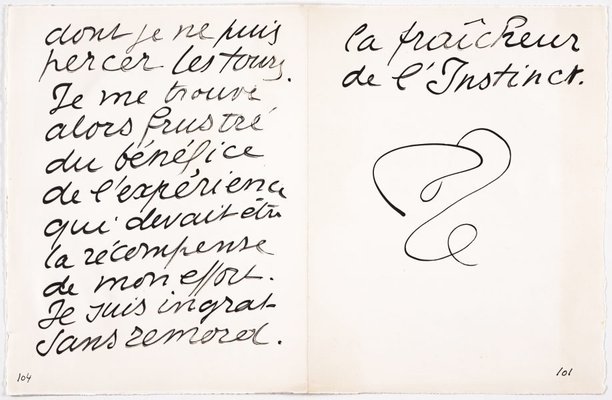 dont je ne puis
percer les tours.
Je me trouve
alors frustré
du bénéfice
de l'expérience
qui devait être
la récompense
de mon effort.
Je suis ingrat
sans remord.
104
la fraîcheur
de l'Instinct.
101